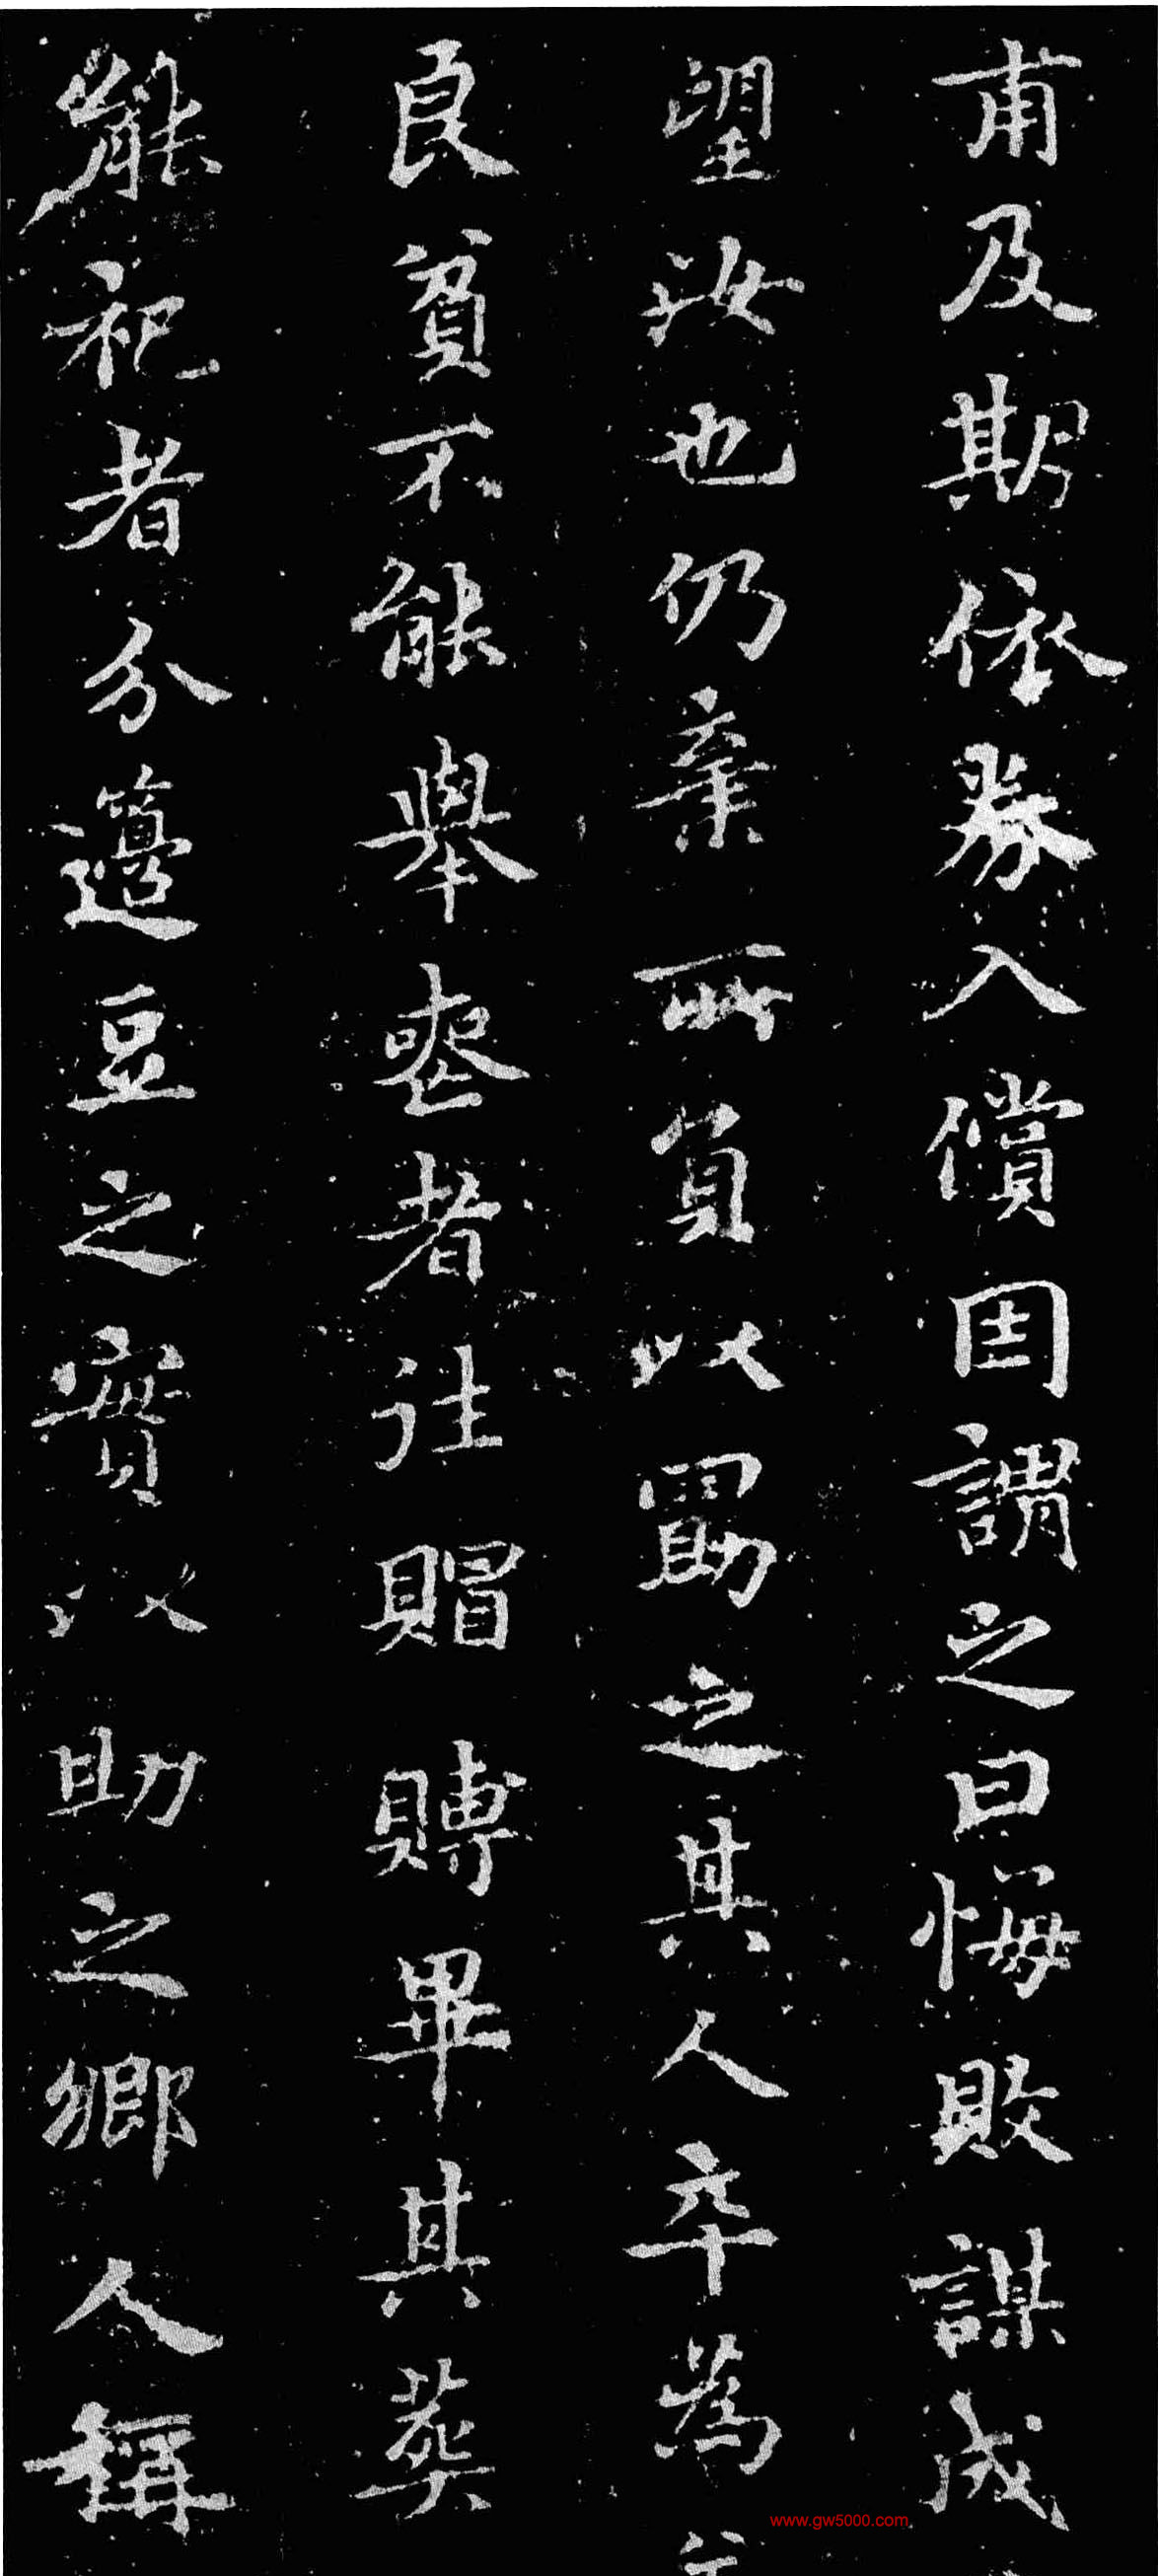 甫及期依券入償因謂之曰悔敗謀成
望汝也仍棄所負以勖之其人卒為
良貧不能舉喪者往賵賻畢其葬
能祀者分籩豆之實以助之鄉人稱
www.gw5000.com